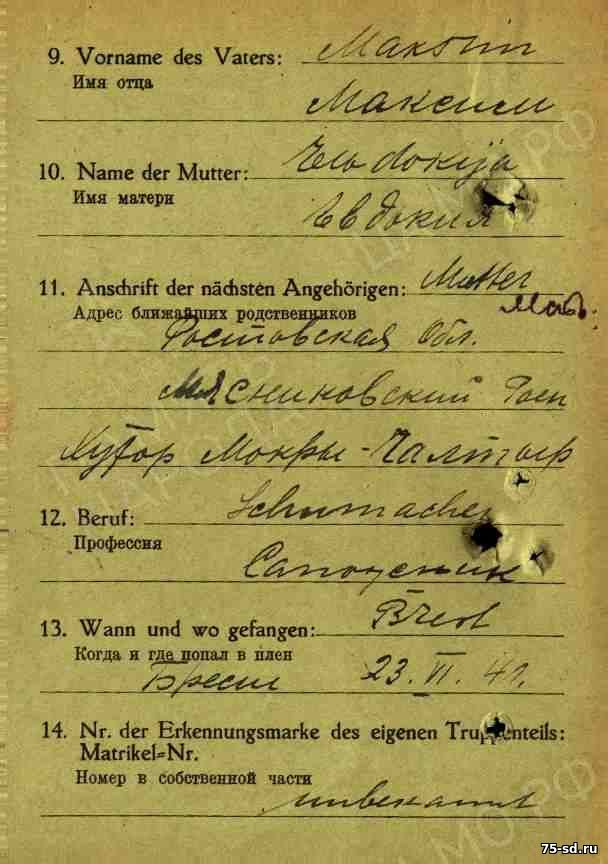 9. Vorname des Vaters: Maksim
Имя отца
Максим
10. Name der Mutter: Ewdokija
Имя матери
Евдокия
11. Anschrift der nächsten Angehörigen: Mutter
Адрес ближайших родственников
Ростовская Обл.
Мясниковский Роен
Хутор Мокры-Чалтыр
12. Beruf: Schumacher
Профессия
Сапожник
13. Wann und wo gefangen: Brest
Когда и где попал в плен
Брест 23. VI. 41.
14. Nr. der Erkennungsmarke des eigenen Truppenteils:
Matrikel=Nr.
Номер в собственной части
unbekannt
75-sd.ru